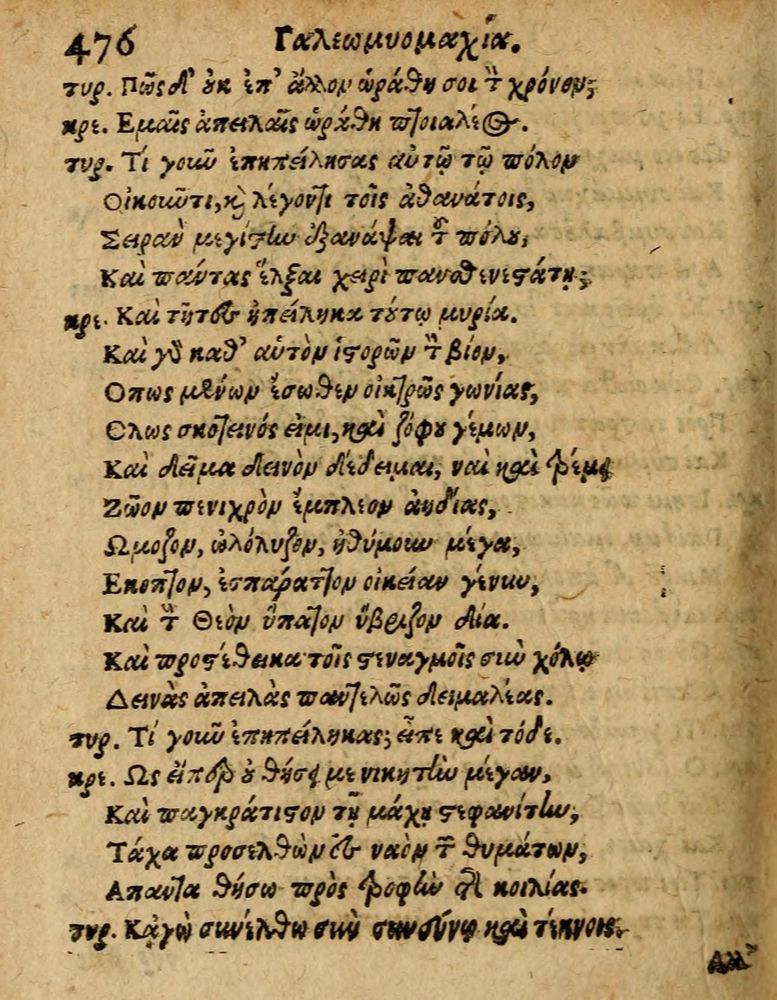 476 Γαλεωμυομαχία.
τυρ. Πῶς δ' ἐκ ἐπ' ἄλλον ὡράθη σοι τὸν χρόνον;
κρε. Εμαῖς ἀπειλαῖς ὡράθη πτοιαλέος.
τυρ. Τί γοιοῦ ἐπηπείλησας αὐτῷ τῷ πόλον
Οἰκοιῶτι, καὶ λέγοντι τοῖς ἀθανάτοις,
Σειρὰν μεγίστιω ἐξανάψαι τοῦ πόλου,
Καὶ πάντας ἕλξαι χειρὶ πανσθενεστάτῃ;
κρε. Καὶ τῆτες ἠπείληκα τούτῳ μυρία.
Καὶ γὰρ καθ' αὑτὸν ἱστορῶν τὸν βίον,
Οπως μένων ἔσωθεν οἰκτρῶς γωνίας,
Ολως σκοτεινός εἰμι, καὶ ζόφου γέμων,
Καὶ δεῖμα δεινὸν δέδειμαι, ναὶ καὶ τρέμω
Ζῶον πενιχρὸν ἔμπλεον ἀηδίας,
Ωμοζον, ὠλόλυζον, ἠθύμοιω μέγα,
Εκοπτον, ἐσπάραττον οἰκείαν γένιω,
Καὶ τὸν Θεὸν ὕπατον ὕβριζον Δία.
Καὶ προστέθεικα τοῖς στεναγμοῖς σιὼ χόλῳ
Δεινὰς ἀπειλὰς παντελῶς δειμαλέας.
τυρ. Τί γοιοῦ ἐπηπείληκας; εἶπε καὶ τόδε.
κρε. Ως εἴπερ οὐ θήσει με νικητίω μέγαν,
Καὶ παγκράτιστον τῇ μάχῃ στεφανίτίω,
Τάχα προσελθὼν ἐς ναὸν τῶν θυμάτων,
Απαντα θήσω πρὸς τροφιὼ τῆς κοιλίας.
τυρ. Κᾀγὼ σιωέλθω σιὼ σιωεύνῳ καὶ τέκνοις.